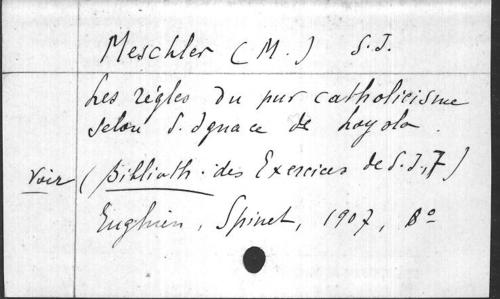 Meschler (M.) S.J.
Les règles du pur catholicisme
selon S. Ignace de Loyola.
voir (Biblioth. des Exercices de S.I., 7)
Enghien, Spinet, 1907, 8°